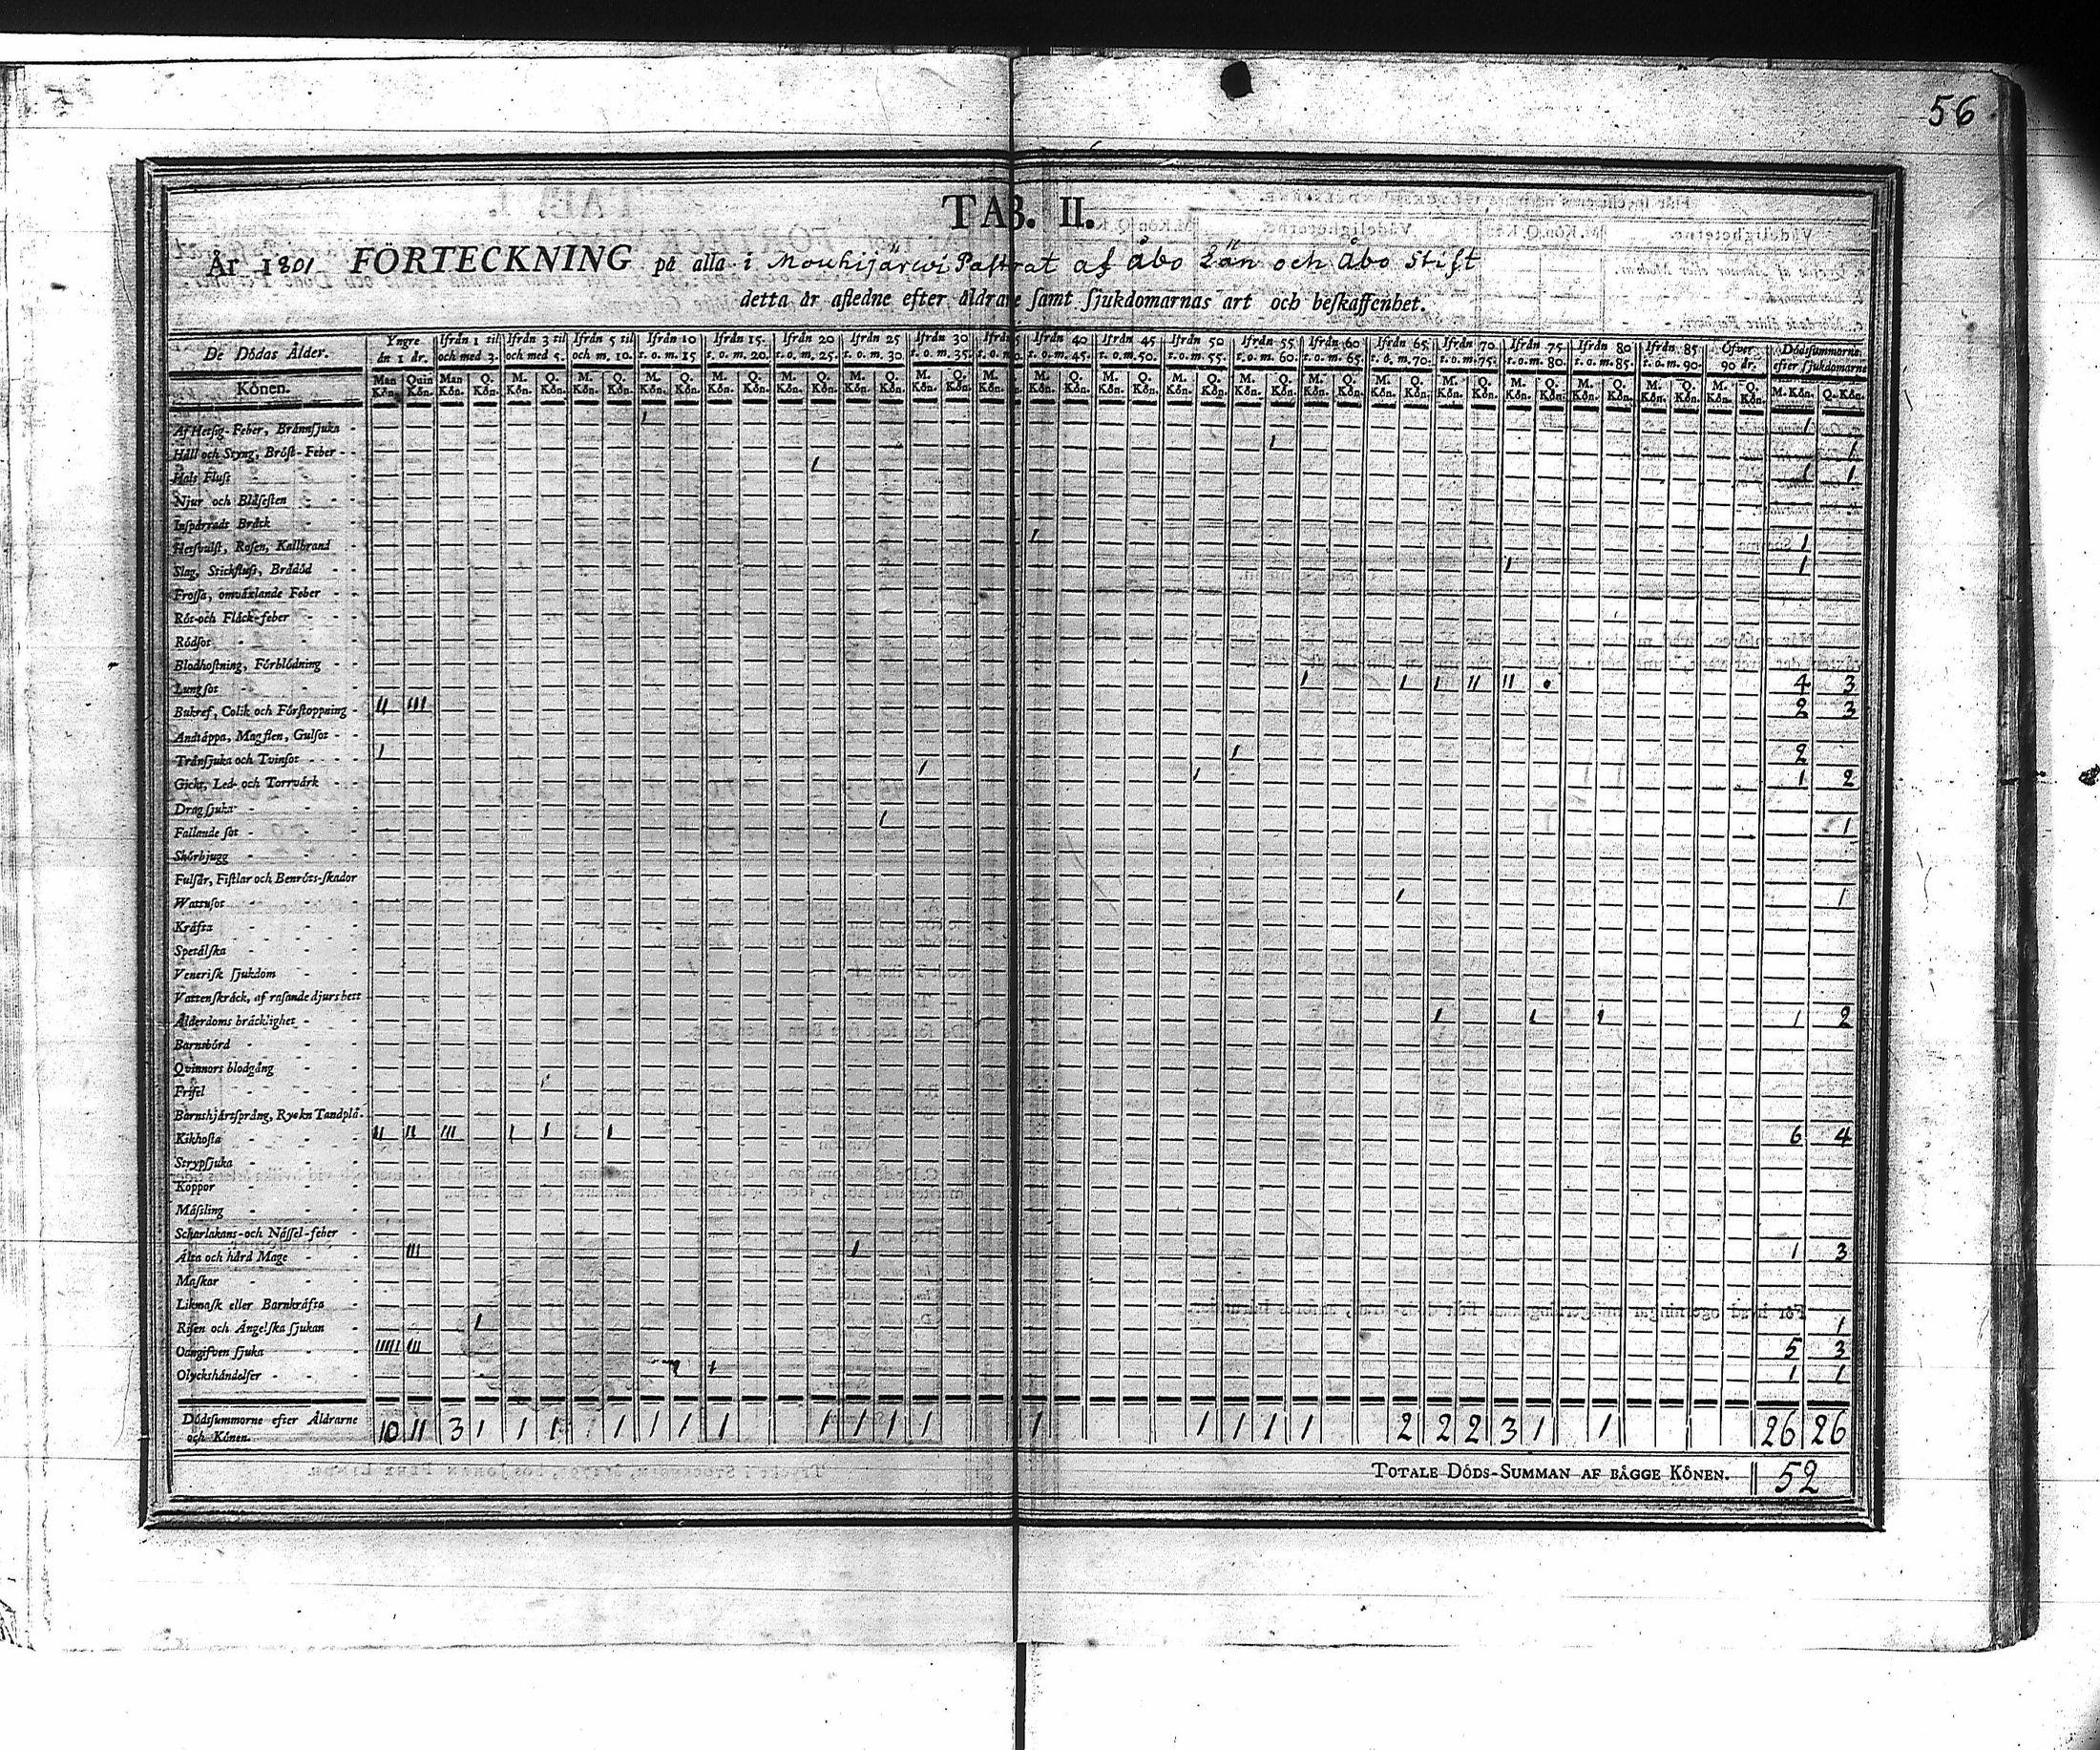 56
TAB. II.
År 1801 FÖRTECKNING på alla i Mouhijärwi Pastorat af Åbo Län och Åbo Stift
detta år afledne efter åldrarne samt sjukdomarnas art och beskaffenhet.
De Dödas Ålder. Yngre än 1 år. Ifrån 1 til och med 3. Ifrån 3 til och med 5. Ifrån 5 til och m. 10. Ifrån 10 t. o. m. 15 Ifrån 15. t. o. m. 20. Ifrån 20 t. o. m. 25. Ifrån 25 t. o. m. 30. Ifrån 30 t. o. m. 35. Ifrån Ifrån 40 t. o. m. 45. Ifrån 45 t. o. m. 50. Ifrån 50 t. o. m. 55. Ifrån 55 t. o. m. 60. Ifrån 60 t. o. m. 65. Ifrån 65 t. o. m. 70. Ifrån 70 t. o. m. 75. Ifrån 75 t. o. m. 80. Ifrån 80 t. o. m. 85. Ifrån 85 t. o. m. 90. Öfver 90 år. Dödssummorne efter sjukdomarne
Könen. Man Kön. Quin Kön. Man Kön. Q. Kön. M. Kön. Q. Kön. M. Kön. Q. Kön. M. Kön. Q. Kön. M. Kön. Q. Kön. M. Kön. Q. Kön. M. Kön. Q. Kön. M. Kön. Q. Kön. M. Kön. M. Kön. Q. Kön. M. Kön. Q. Kön. M. Kön. Q. Kön. M. Kön. Q. Kön. M. Kön. Q. Kön. M. Kön. Q. Kön. M. Kön. Q. Kön. M. Kön. Q. Kön. M. Kön. Q. Kön. M. Kön. Q. Kön. M. Kön. Q. Kön. M. Kön. Q. Kön.
Af Hetsig-Feber, Brännsjuka - 1 1
Håll och Styng, Bröst-Feber - - 1 1
Hals Fluss 1 1 1
Njur och Blåsesten - - -
Inspärrads Bråck - -
Hetsvulst, Rosen, Kallbrand - 1 1
Slag, Stickfluss, Brådöd - - 1 1
Frossa, omväxlande Feber - -
Röt-och Fläck-feber - - -
Rödsot - - -
Blodhostning, Förblödning - -
Lungsot - - - 1 1 1 11 11 4 3
Bukref, Colik och Förstoppning - 11 111 2 3
Andtäppa, Magsten, Gulsot - -
Trånsjuka och Tvinsot - - - 1 1 2
Gickt, Led- och Torrvärk - - 1 1 1 2
Dragsjuka - - -
Fallande sot - - - 1 1
Skörbjugg - - -
Fulsår, Fistlar och Benröts-skador
Wattusot - - - 1 1
Kräfta - - - -
Spetälska - - -
Venerisk sjukdom - -
Vattenskräck, af rasande djurs bett
Ålderdoms bräcklighet - - 1 1 1 1 2
Barnsbörd - - -
Qvinnors blodgång - -
Frisel - - -
Barnshjärtsprång, Ryck
Kikhosta - - - 11 11 111 1 1 1 6 4
Strypsjuka - - -
Koppor - - -
Mässling - - -
Scharlakans-och Nässel-feber -
Älta och hård Mage - - 111 1 1 3
Maskar - - -
Likmask eller Barnkräfta -
Risen och Ängelska sjukan - 1 1
Oangifven sjuka - - 11111 111 5 3
Olyckshändelser - - - 1 1 1 1
Dödssummorne efter Åldrarne och Könen. 10 11 3 1 1 1 1 1 1 1 1 1 1 1 1 1 1 1 1 2 2 2 3 1 1 26 26
TOTALE DÖDS-SUMMAN AF BÄGGE KÖNEN. 52